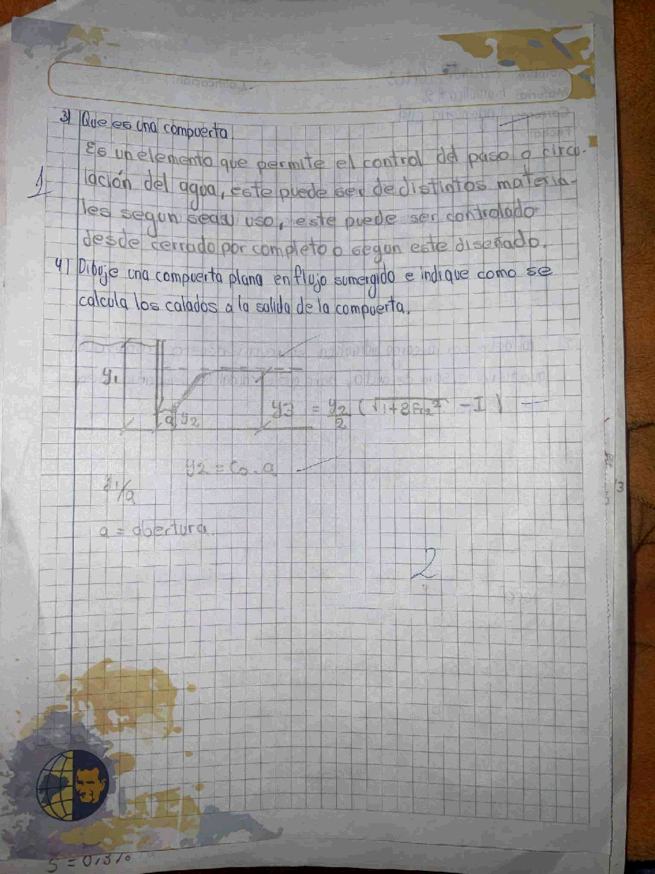 3) Que es una compuerta
Es un elemento que permite el control del paso o circu-
1
lación del agua, este puede ser de distintos materia-
les segun sea su uso, este puede ser controlado
desde cerrado por completo o segun este diseñado.
4) Dibuje una compuerta plana en flujo sumergido e indique como se
calcula los calados a la salida de la compuerta.
y1
a y2
y3 = y2/2 (√1+8Fr2² - 1)
y2 = Co . a
y1/a
a = abertura
2